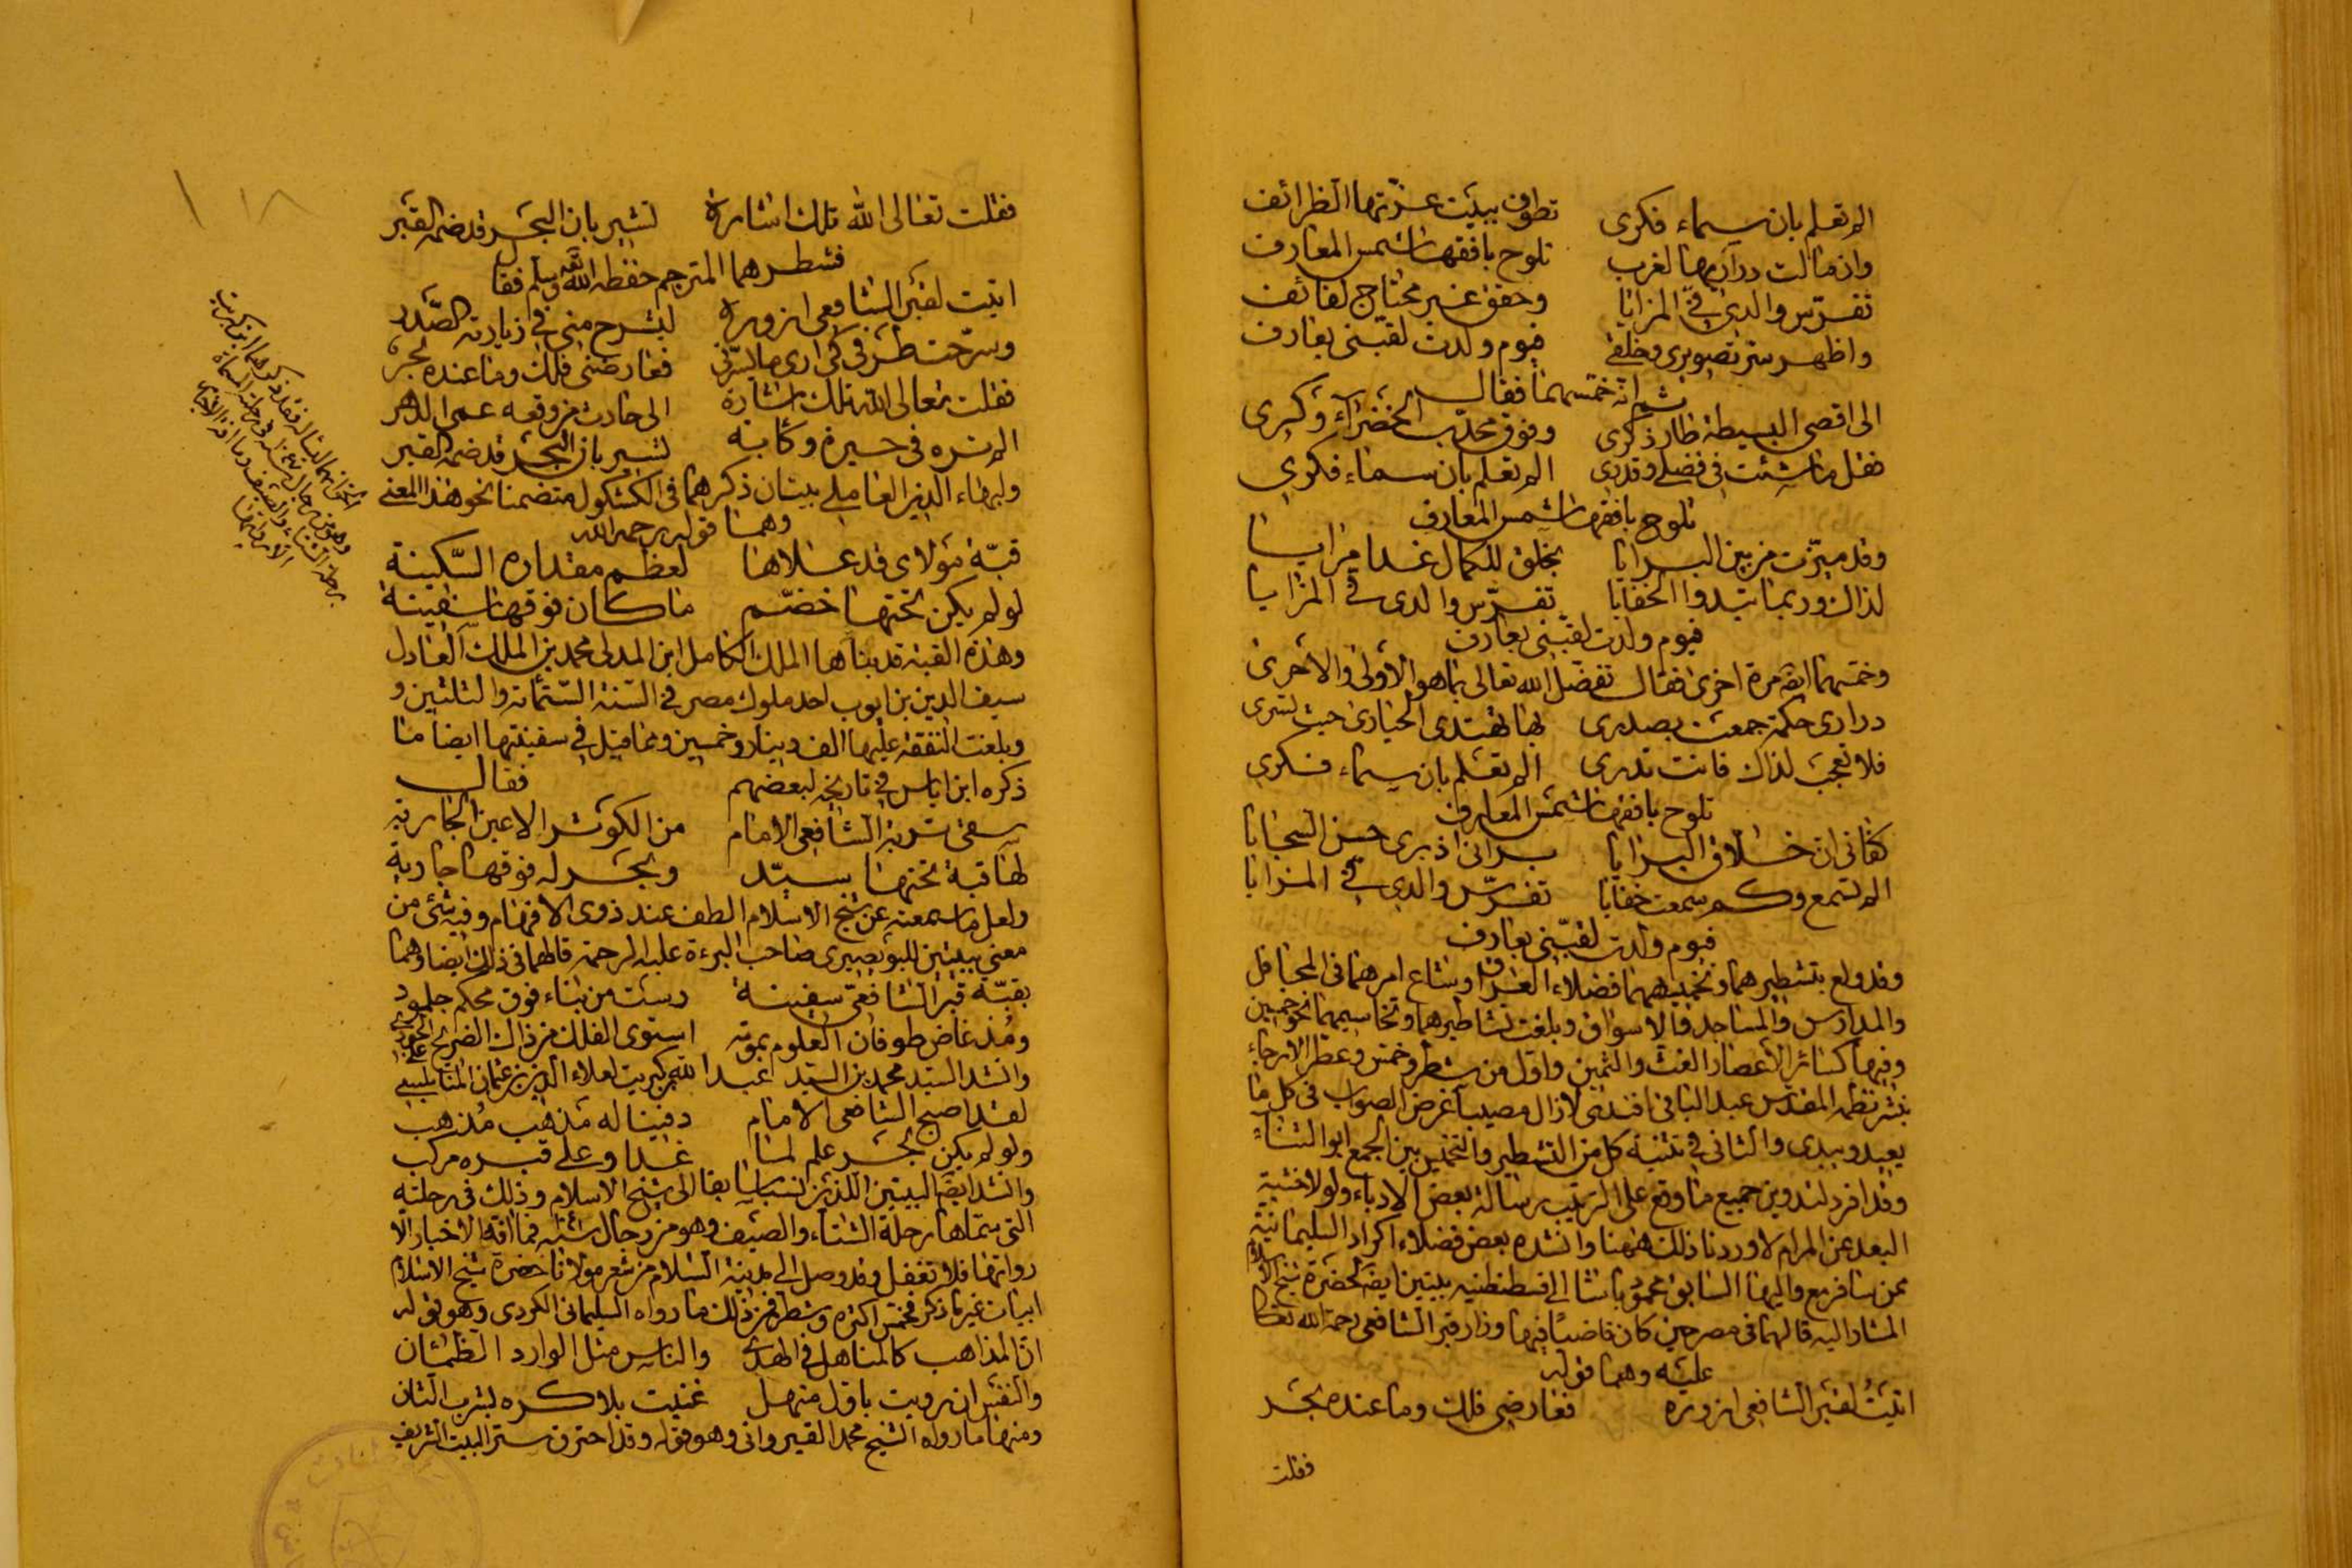 الم تعلم بان سماء فكرى تطوف ببيت عزتها الظرائف
وان مالت دراريها لغرب تلوح بافقها شمس المعارف
تفرّس والدى في المزايا وحقق غير محتاج لقائف
واظهر ستر تصويرى وخلقى فيوم ولدت لقبنى بعارف
ثم انه خمسهما فقال
الى اقصى البسيطة طار ذكرى وفوق محدّب الخضراء وكرى
فقل ما شئت في فضلى وقدرى الم تعلم بان سماء فكرى
تلوح بافقها شمس المعارف
وقد ميّزت من بين البرايا بخلق للكمال غدا مرايا
لذاك وربما تبدوا الخفايا تفرّس والدى في المزايا
فيوم ولدت لقبنى بعارف
وخمسهما ايضه مرة اخرى فقال تفضل الله تعالى بما هو الأولى والاحرى
درارى حكمة جمعت بصدرى بها تهتدى الحيارى حيث تسرى
فلا تعجب لذاك فانت تدرى الم تعلم بان سماء فكرى
تلوح بافقها شمس المعارف
كفانى ان خلاق البرايا برانى اذ برى حسن السجايا
الم تسمع وكم سمعت خفايا تفرّس والدى في المزايا
فيوم ولدت لقبنى بعارف
وقد ولع بتشطيرهما وتخميسهما فضلاء العراق وشاع امرهما في المحافل
والمدارس والمساجد والاسواق وبلغت تشاطيرهما وتخاميسهما نحو خمسين
وفيها كسائر الاعصار الغث والثمين واول من شطر وخمس وعطر الارجاء
بنشر نظمه المقدس عبد الباقى افندى لازال مصيبا غرض الصواب فى كل ما
يعيد ويبدى والثانى في تثنية كل من التشطير والتخميس بين الجمع ابو الثناء
وقد افرد لتدوين جميع ما وقع على الترتيب رسالة بعض الادباء ولولا خشية
البعد عن المرام لاوردنا ذلك ههنا وانشده بعض فضلاء اكراد السليمانية
ممن سافر مع واليها السابق محمود باشا الى قسطنطنيه بيتين ايضه لحضرة شيخ الاسلام
المشار اليه قالهما فى مصر حين كان قاضيا فيها وزار قبر الشافعى رحمة الله تعالى
عليه وهما قوله
اتيتُ لقبر الشافعى ازوره فعارضنى فلك وما عنده بحر
فقلت
فقلت تعالى الله تلك اشارة تشير بان البحر قد ضمه القبر
فشطرهما المترجم حفظه الله تعه وسلم فقال
اتيت لقبر الشافعى ازوره ليشرح منى في زيارته الصدر
وسرّحت طرفى كى ارى ما يسرّنى فعارضنى فلك وما عنده بحر
فقلت تعالى الله تلك اشارة الى حادث من وقعه عمى الدهر
الم تره فى حسيرة وكابة تشير بان البحر قد ضمه القبر
ولبهاء الدين العاملى بيتان ذكرهما فى الكشكول متضمنا نحو هذا المعنى
وهما قوله رحمه الله
قبّة مولاى قد علاها لعظم مقداره السّكينة
لو لم يكن تحتها خضّم ما كان فوقها سفينة
وهذه القبة قد بناها الملك الكامل ابن المدلى محمد بن الملك العادل
سيف الدين بن ايوب احد ملوك مصر في السّنة السّتمائه والثلثين و
وبلغت النفقة عليها الف دينار وخمسين ومما قيل في سفينتها ايضا ما
ذكره ابن اياس في تاريخه لبعضهم فقال
سقى تربة الشافعى الامام من الكوثر الاعين الجاريه
لها قبة تحتها سيّد وبحر له فوقها جارية
ولعل ما سمعته عن شيخ الاسلام الطف عند ذوى الافهام وفيه شئ من
معنى بيتين للبوصيرى صاحب البرءة عليه الرحمة قالهما فى ذلك ايضا وهما
بقبّة قبر الشافعىّ سفينة رست من بناء فوق محكم جلمود
ومُذ غاض طوفان العلوم بموته استوى الفلك من ذاك الضريح على الجودى
وانشد السيد محمد بن السيد عبد الله كبريت لعلاء الدين بن عثمان النابلسى
لقد اصبح الشافعى الامام دفينا له مذهب مُذهب
ولو لم يكن بحر علم لما غدا وعلى قبره مركب
وانشد ايضا البيتين اللذين نسبا سابقا الى شيخ الاسلام وذلك فى رحلته
التى سماها رحلة الشتاء والصيف وهو من رجال سنه فما افة الاخبار الا
رواتها فلا تغفل وقد وصل الى مدينة السلام من شعر مولانا حضرة شيخ الاسلام
ابيات غير ما ذكر فخمس اكثره وشطر فمن ذلك ما رواه السليمانى الكردى وهو قوله
ان المذاهب كالمناهل في الهدى والناس مثل الوارد الظمئان
والنفس ان رويت باول منهل غنيت بلا كره لشرب الثان
ومنها ما رواه الشيخ محمد القيروانى وهو قوله وقد احترق ستر البيت الشريف